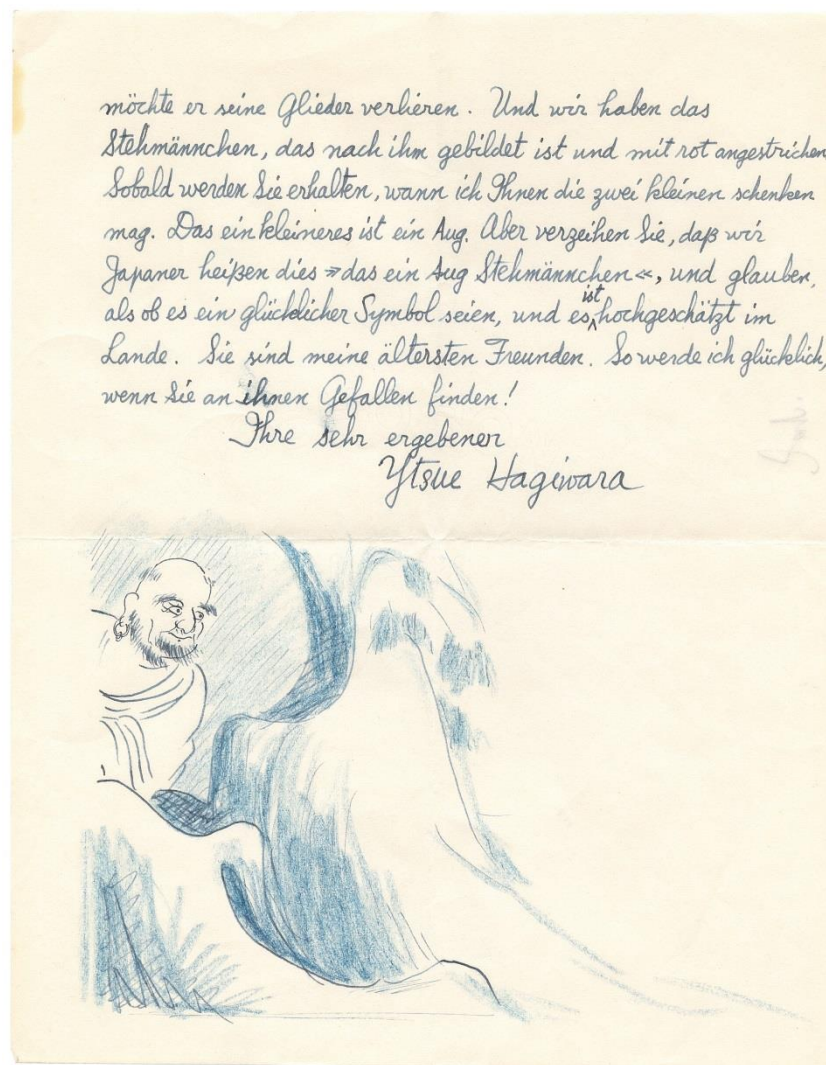 möchte er seine Glieder verlieren. Und wir haben das
Stehmännchen, das nach ihm gebildet ist und mit rot angestrichen
Sobald werden Sie erhalten, wann ich Ihnen die zwei kleinen schenken
mag. Das ein kleineres ist ein Aug. Aber verzeihen Sie, daß wir
Japaner heißen dies »das ein Aug Stehmännchen«, und glauben,
als ob es ein glücklicher Symbol seien, und es ist hochgeschätzt im
Lande. Sie sind meine ältersten Freunden. So werde ich glücklich,
wenn Sie an ihnen Gefallen finden!
Ihre sehr ergebener
Ytsue Hagiwara